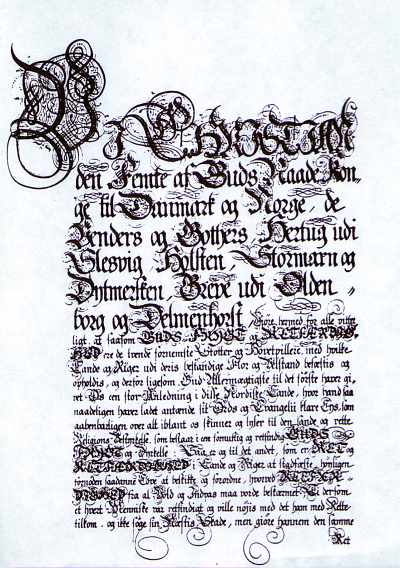 Vi CHRISTIAN
den Femte af Guds Naade, Kon-
ge til Danmark og Norge, de
Venders og Gothers, Hertug udi
Slesvig, Holsten, Stormarn og
Dytmersken, Greve udi Olden-
borg og Delmenhorst. Giøre hermed for alle vitter-
ligt, at saasom GUDS FRYGT og RETFÆRDIG-
HED ere de tvende fornemste Støtter og Hovetpillere, med hvilke
Lande og Riger udi deris bestandige Flor og Velstand befæstis og
opholdis, og derfor ligesom Gud Allermægtigste til det første haver gi-
vet Os een stor Anledning i disse Nordiske Lande, hvor hand saa
naadeligen haver ladet antænde sit Ords og Evangelii klare Lys, som
aabenbarligen over alt iblant os skinner og lyser til den sande og rette
Religions Befæstelse, som bestaar i een fornuftig og retsindig GUDS
FRYGT og Dyrkelse. Saa er og til det andet, som er RET og
RETFÆRDIGHED i Lande og Riger at stadfæste, høyligen
fornøden saadanne Love at beskikke og forordne, hvorved RETFÆR-
DIGHED fra al Vold og Indpas maa vorde beskærmet. Ti dersom
et hvert Menniske var retsindig og ville nøjis med det ham med Rette
tilkom, og ikke søge sin Næstis Skade, men giøre hannem den samme
Ret